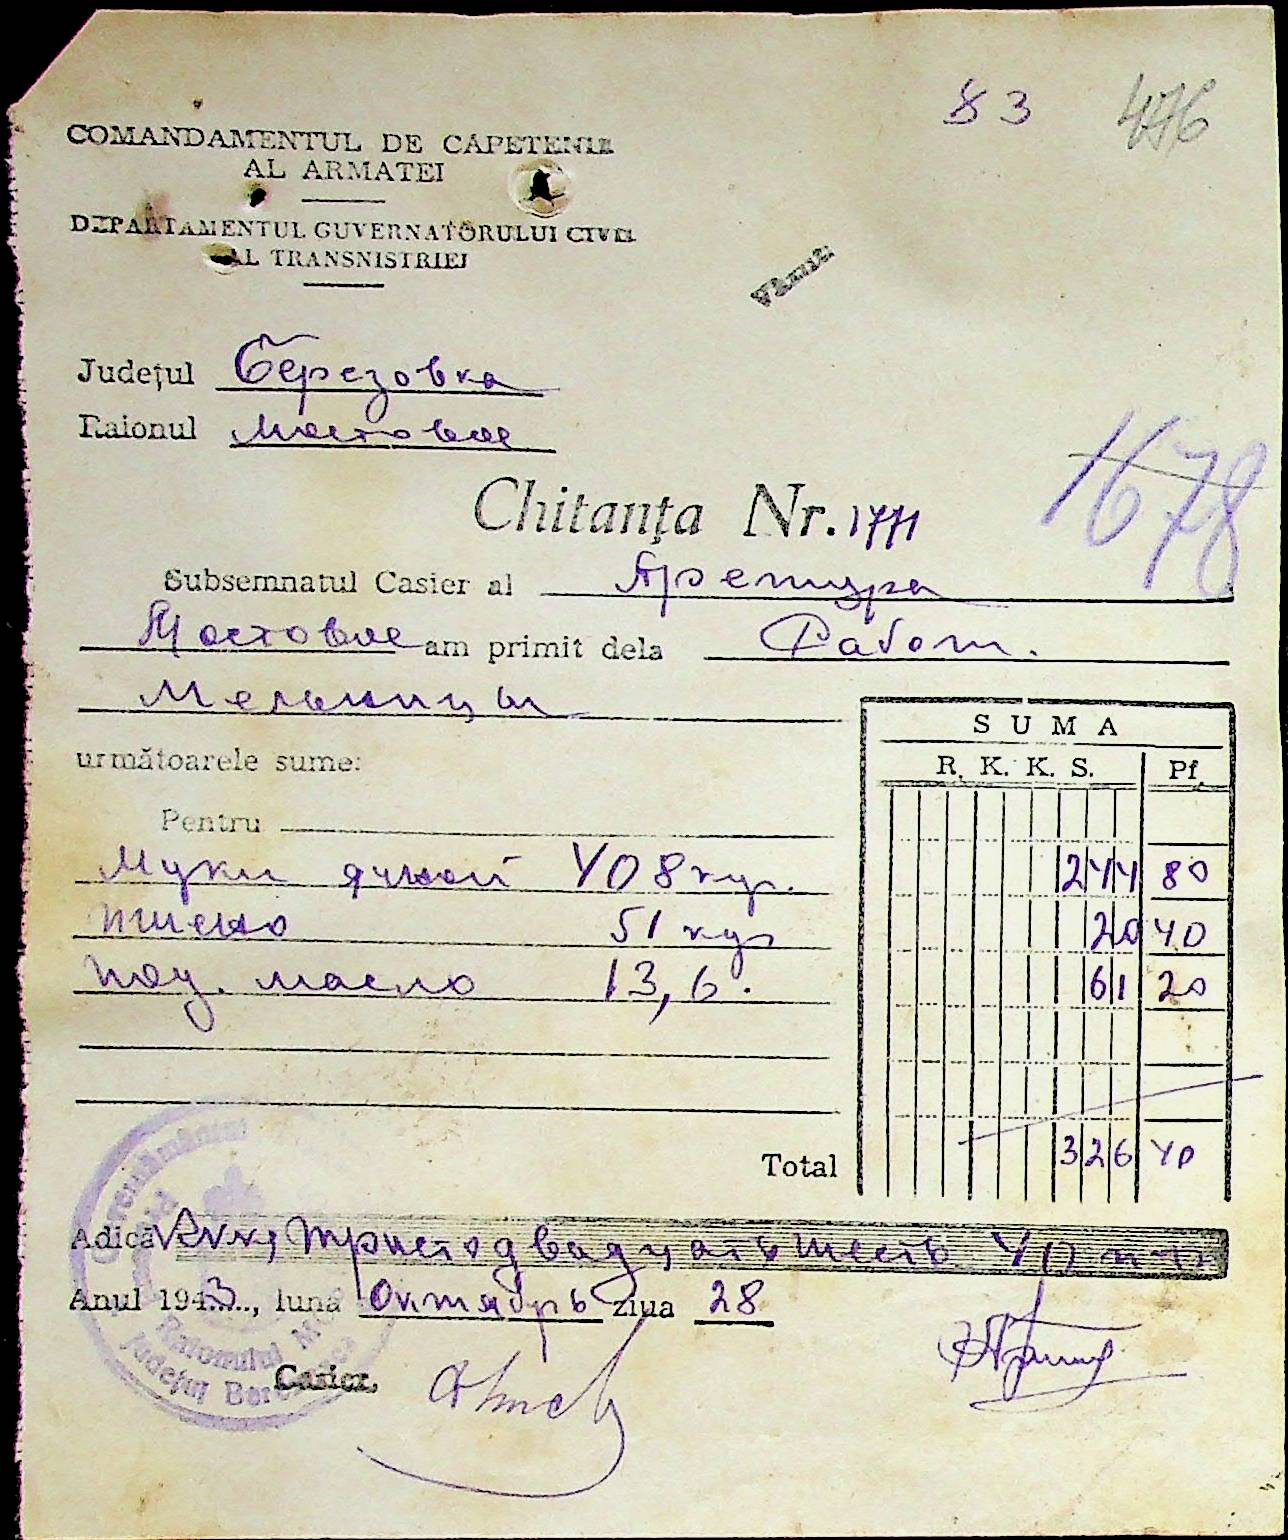 83 476
COMANDAMENTUL DE CAPETENIE
AL ARMATEI
DEPARTAMENTUL GUVERNATORULUI CIVIL
AL TRANSNISTRIEI
Județul Березовка
Raionul Мостовое
1678
Chitanța Nr. 1771
Subsemnatul Casier al Претура
Мостовое am primit dela Работ.
Мельницы
SUMA
următoarele sume:
R. K. K. S. Pf.
Pentru
Муки ячной 408 кгр. 244 80
пшено 51 кгр 20 40
под. масло 13,6. 61 20
Total 326 40
Adică РККС, тристо двадцать шесть 40 пф
Anul 1943..., luna Октябрь ziua 28
Raionului
Județul
Casier,